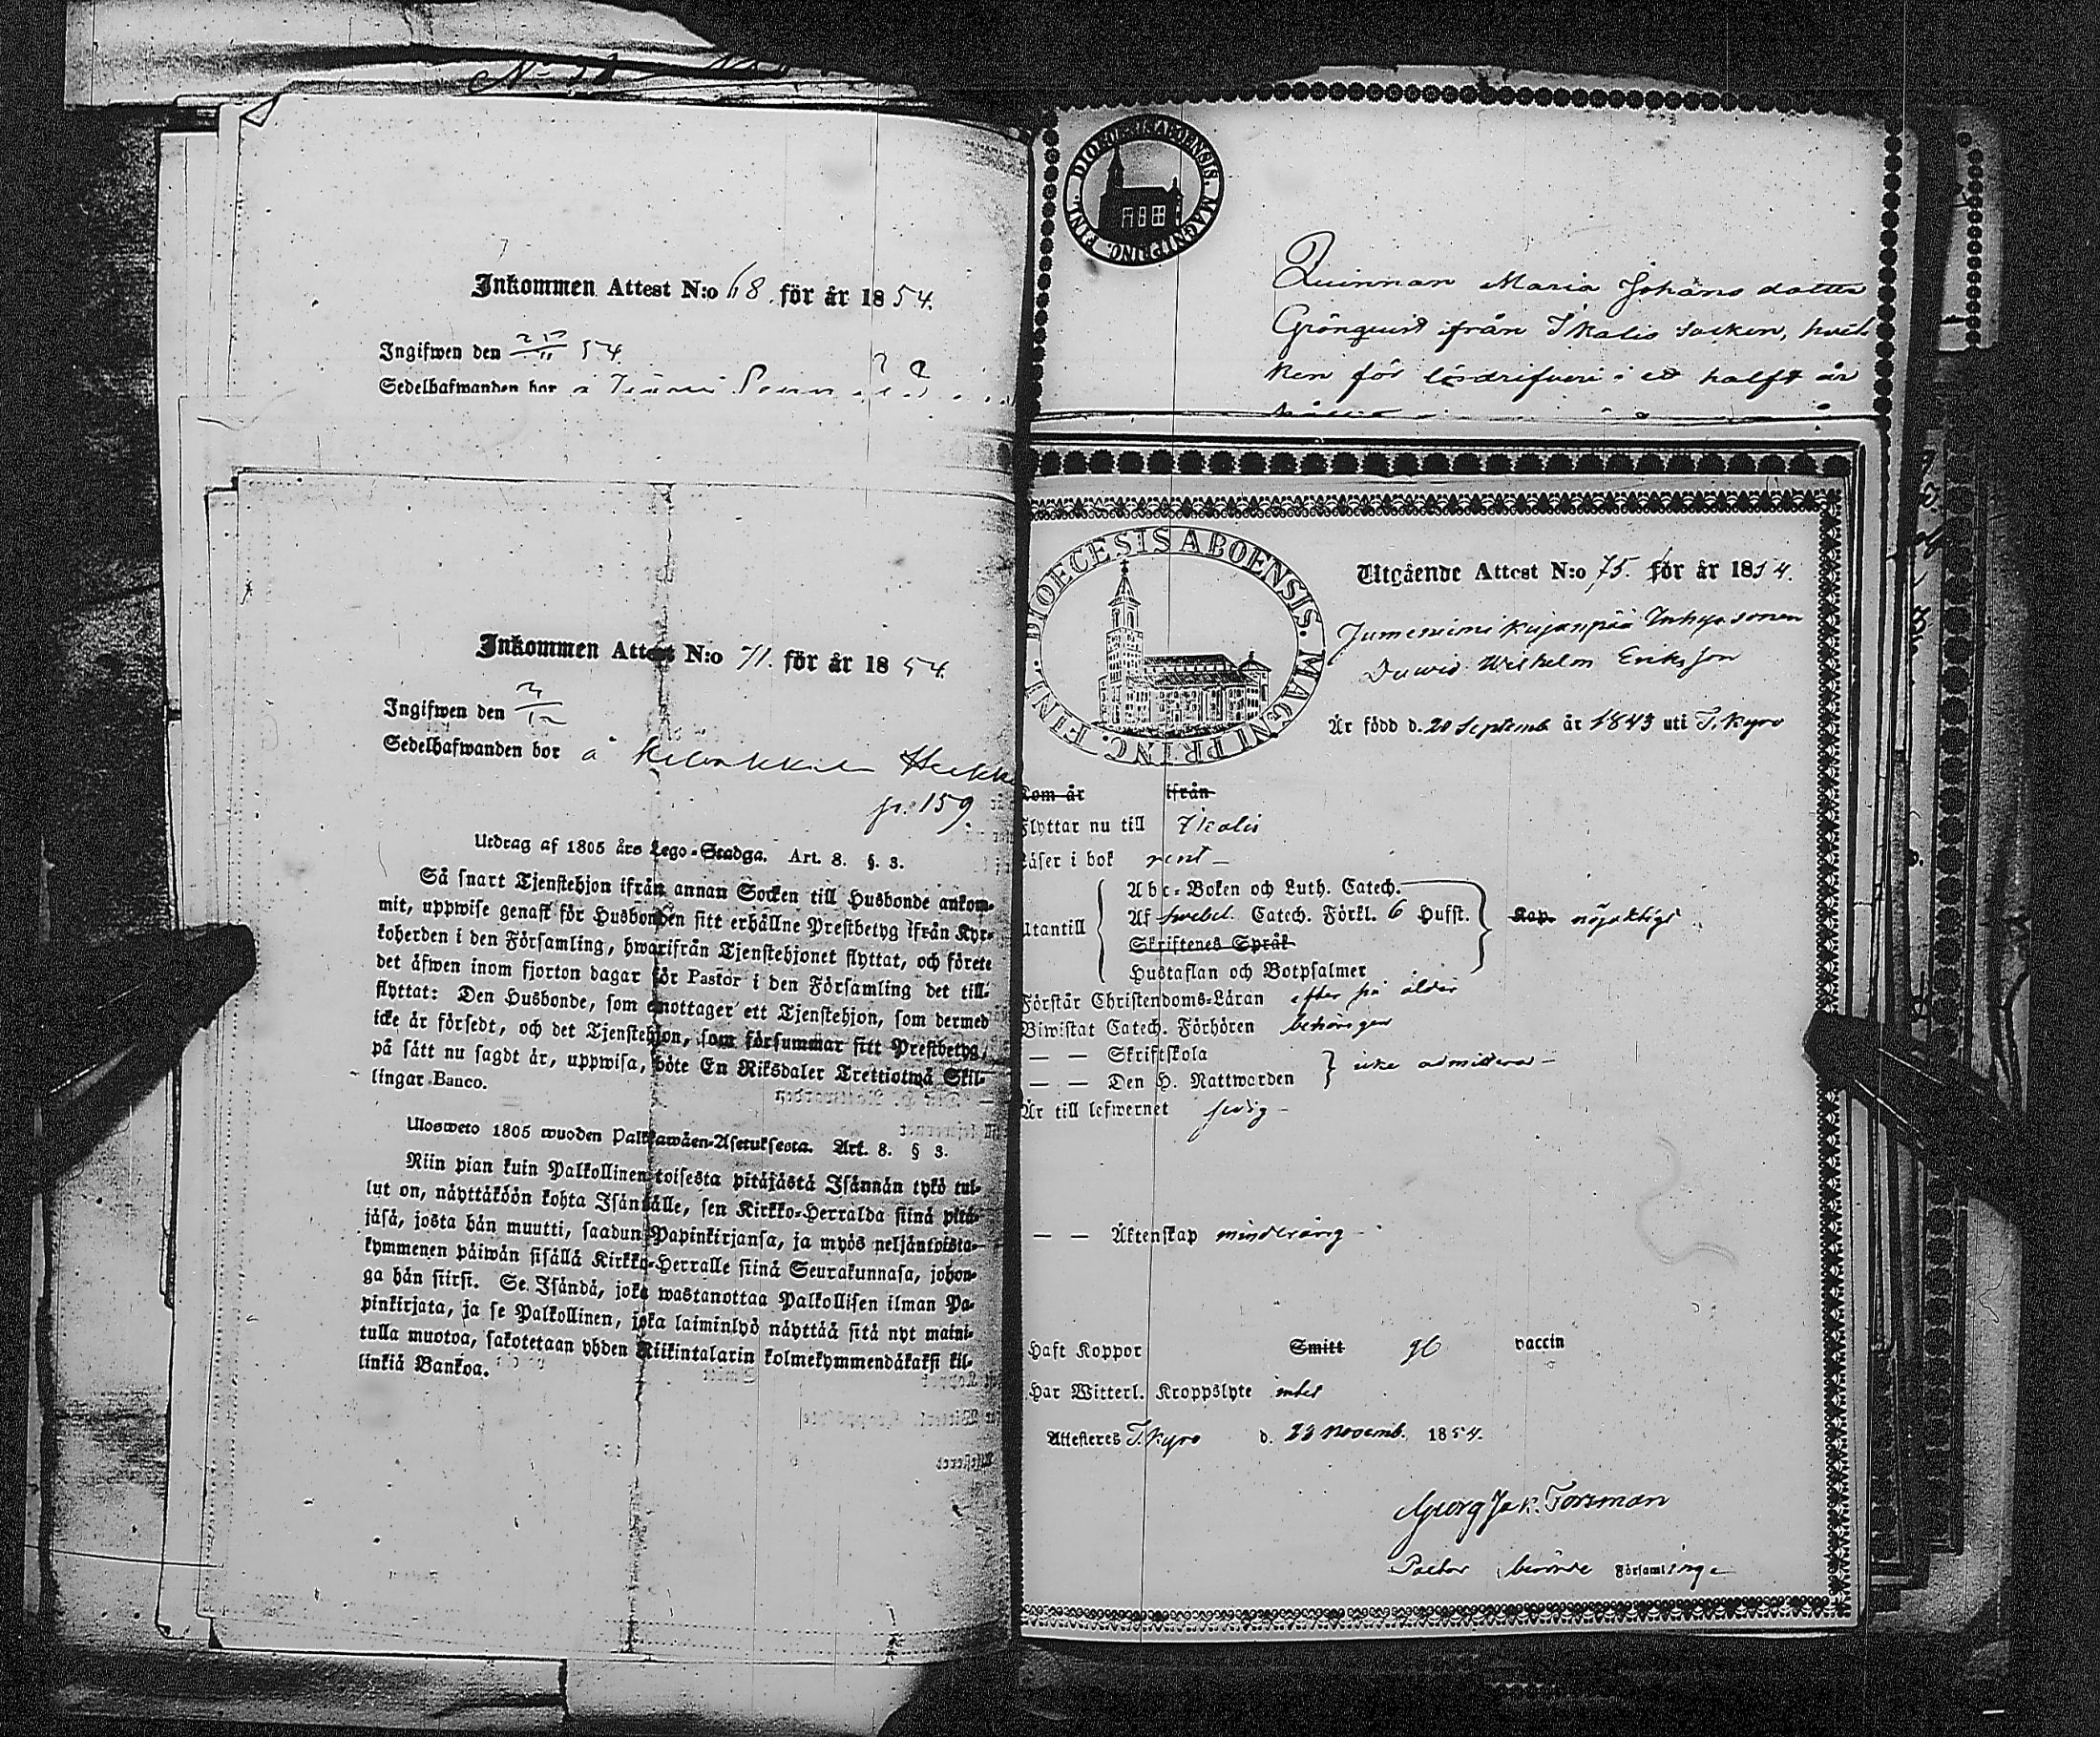 Inkommen Attest N:o 68. för år 1854.
Ingifwen den 54.
Sedelhafwanden bor å
Inkommen Attest N:o 71. för år 1854.
Ingifwen den 3/12
Sedelhafwanden bor å
p. 159.
Utdrag af 1805 års Lego-Stadga. Art. 8. §. 3.
Så snart Tjenstehjon ifrån annan Socken till Husbonde ankom-
mit, uppwise genast för Husbonden sitt erhållne Prestbetyg ifrån Kyr-
koherden i den Församling, hwarifrån Tjenstehjonet flyttat, och förete
det äfwen inom fjorton dagar för Pastor i den Församling det till-
flyttat: Den Husbonde, som emottager ett Tjenstehjon, som dermed
icke är försedt, och det Tjenstehjon, som försummar sitt Prestbetyg,
på sätt nu sagdt är, uppwisa, böte En Riksdaler Trettiotwå Skil-
lingar Banco.
Ulosweto 1805 wuoden Palkkawäen-Asetuksesta. Art. 8. § 3.
Niin pian kuin Palkollinen toisesta pitäjästä Isännän tykö tul-
lut on, näyttäköön kohta Isännälle, sen Kirkko-Herralda siinä pitä-
jäsä, josta hän muutti, saadun Papinkirjansa, ja myös neljäntoista-
kymmenen päiwän sisällä Kirkko-Herralle siinä Seurakunnasa, johon-
ga hän siirsi. Se Isändä, joka wastanottaa Palkollisen ilman Pa-
pinkirjata, ja se Palkollinen, joka laiminlyö näyttää sitä nyt maini-
tulla muotoa, sakotetaan yhden Riikintalarin kolmekymmendäkaksi kil-
linkiä Bankoa.
DIOECESIS ABOENSIS. MAGNI PRINC. FINL.
Quinnan Maria Johans dotter
Grönqvist ifrån Ikalis socken, hvil
ken för lösdrifveri i ett halft år
DIOECESIS ABOENSIS. MAGNI PRINC. FINL.
Utgående Attest N:o 75. för år 1854.
Jumesniemi Kujanpää Inhyses sonen
Dawid Wilhelm Eriksson
Är född d. 20 Septemb år 1843 uti T. kyro
Kom år ifrån
Flyttar nu till Ikalis
Läser i bok rent
Utantill
Abc-Boken och Luth. Catech.
Af Swebel. Catech. Förkl. 6 Hufst.
Skriftenes Språk
Hustaflan och Botpsalmer
Kap. nöjaktigt
Förstår Christendoms-Läran efter sin ålder
Biwistat Catech. Förhören behörigen
— — Skriftskola
— — Den H. Nattwarden
icke admitterad
Är till lefwernet sedig
— — Äktenskap minderårig
Haft Koppor Smitt vaccin
Har Witterl. Kroppslyte intet
Attesteres T. kyro d. 23 Novemb. 1854.
Georg Jak. Forsman
Pastor i berörde Församlinge